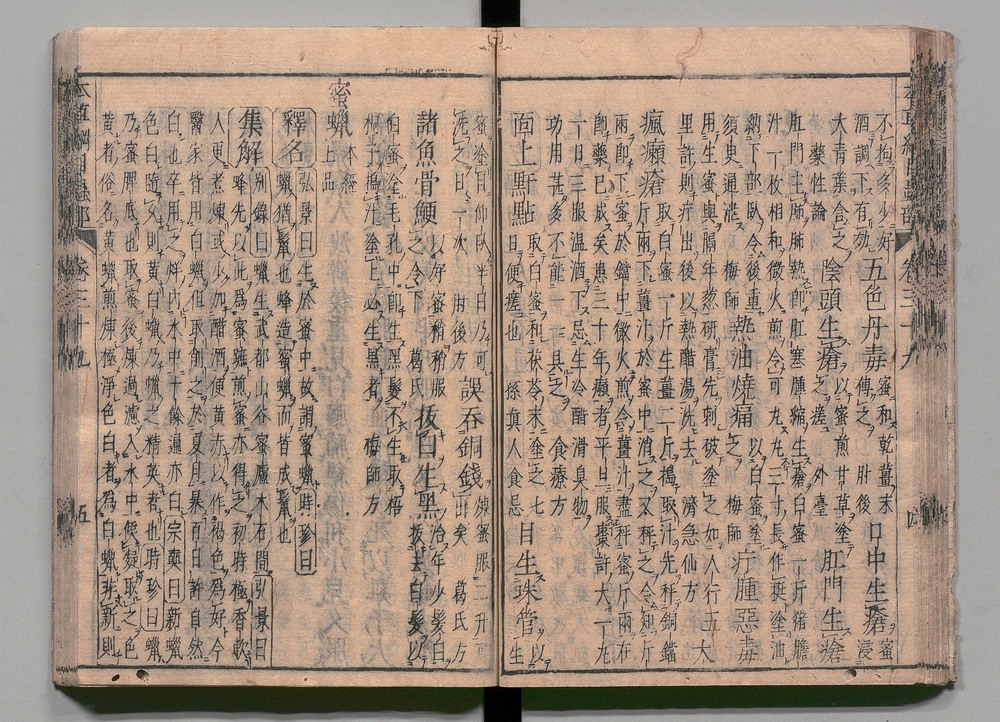 不拘多少好
酒調下有效 五色丹毒 蜜和乾薑末
傅之 肘後 口中生瘡 蜜浸
大青葉含之
藥性論 陰頭生瘡 以蜜煎甘草塗
之瘥 外臺 肛門生瘡
肛門主肺肺熱即肛塞腫縮生瘡白蜜一斤豬膽
汁一枚相和微火煎令可丸丸三寸長作挺塗油
納下部臥令後重
須臾通泄 梅師 熱油燒痛 以白蜜塗
之 梅師 疔腫惡毒
用生蜜與隔年葱研膏先刺破塗之如人行五
里許則疔出後以熱醋湯洗去 濟急仙方 大
瘋癩瘡 取白蜜一斤生薑二斤搗取汁先秤銅鐺
斤兩下薑汁於蜜中消之又秤之令知斤
兩即下蜜於鐺中微火煎令薑汁盡秤蜜斤兩在
即藥已成矣患三十年癩者平旦服棗許大一丸
一日三服溫酒下忌生冷醋滑臭物
功用甚多不能一一具之 食療方
面上䵟點 取白蜜和茯苓末塗之七
日便瘥也 孫真人食忌 目生珠管 以生
蜜塗目仰臥半日乃可
洗之日一次 肘後方 誤吞銅錢 煉蜜服二升可
出矣 葛氏方
諸魚骨鯁 以好蜜稍稍服
之令下 葛氏 拔白生黑 治年少髮白
拔去白髮以
白蜜塗毛孔中即生黑髮不生取梧
桐子搗汁塗上必生黑者 梅師方
蜜蠟 本經
上品
釋名 弘景曰生於蜜中故謂蜜蠟時珍曰
蠟猶鬣也蜂造蜜蠟而皆成鬣也
集解 別錄曰蠟生武都山谷蜜廬木石間弘景曰
蜂先以此為蜜蹠煎蜜亦得之初時極香軟
人更煮煉或少加醋酒便黃赤以作褐色為好今
醫家皆用白蠟但取削之於夏月暴百日許自然
白也卒用之烊內水中十餘遍亦白宗奭曰新蠟
色白隨久則黃白蠟乃蠟之精英者也時珍曰蠟
乃蜜脾底也取蜜後煉過濾入水中候凝取之色
黃者俗名黃蠟煎煉極淨色白者為白蠟非新則
卷三十九
四
卷三十九
五